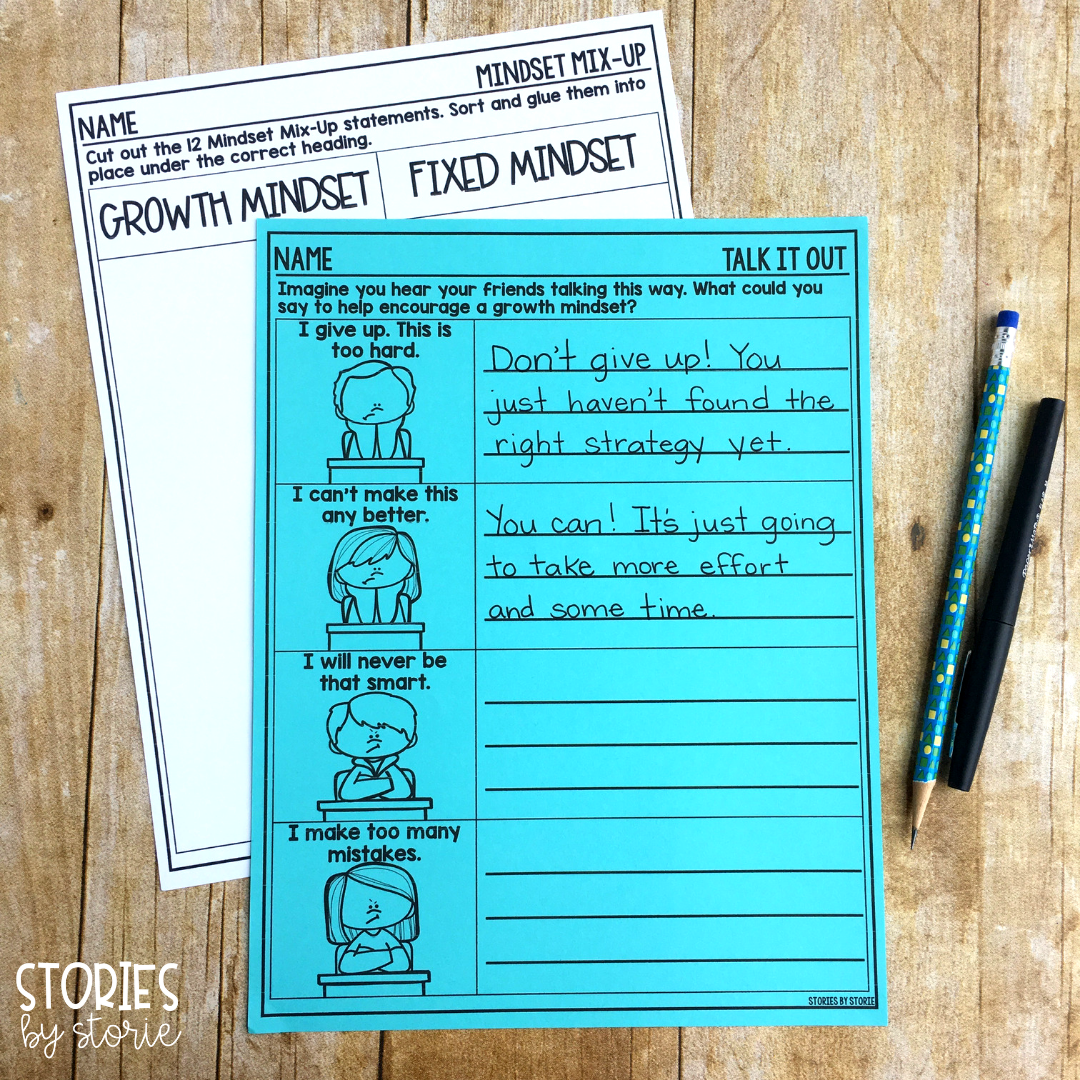 MINDSET MIX-UP
NAME
Cut out the 12 Mindset Mix-Up statements. Sort and glue them into
place under the correct heading.
GROWTH MINDSET
FIXED MINDSET
NAME
TALK IT OUT
Imagine you hear your friends talking this way. What could you
say to help encourage a growth mindset?
I give up. This is
too hard.
Don't give up! You
just haven't found the
right strategy yet.
I can't make this
any better.
You can! It's just going
to take more effort
and some time.
I will never be
that smart.
I make too many
mistakes.
STORIES BY STORIE
STORIES
by storie